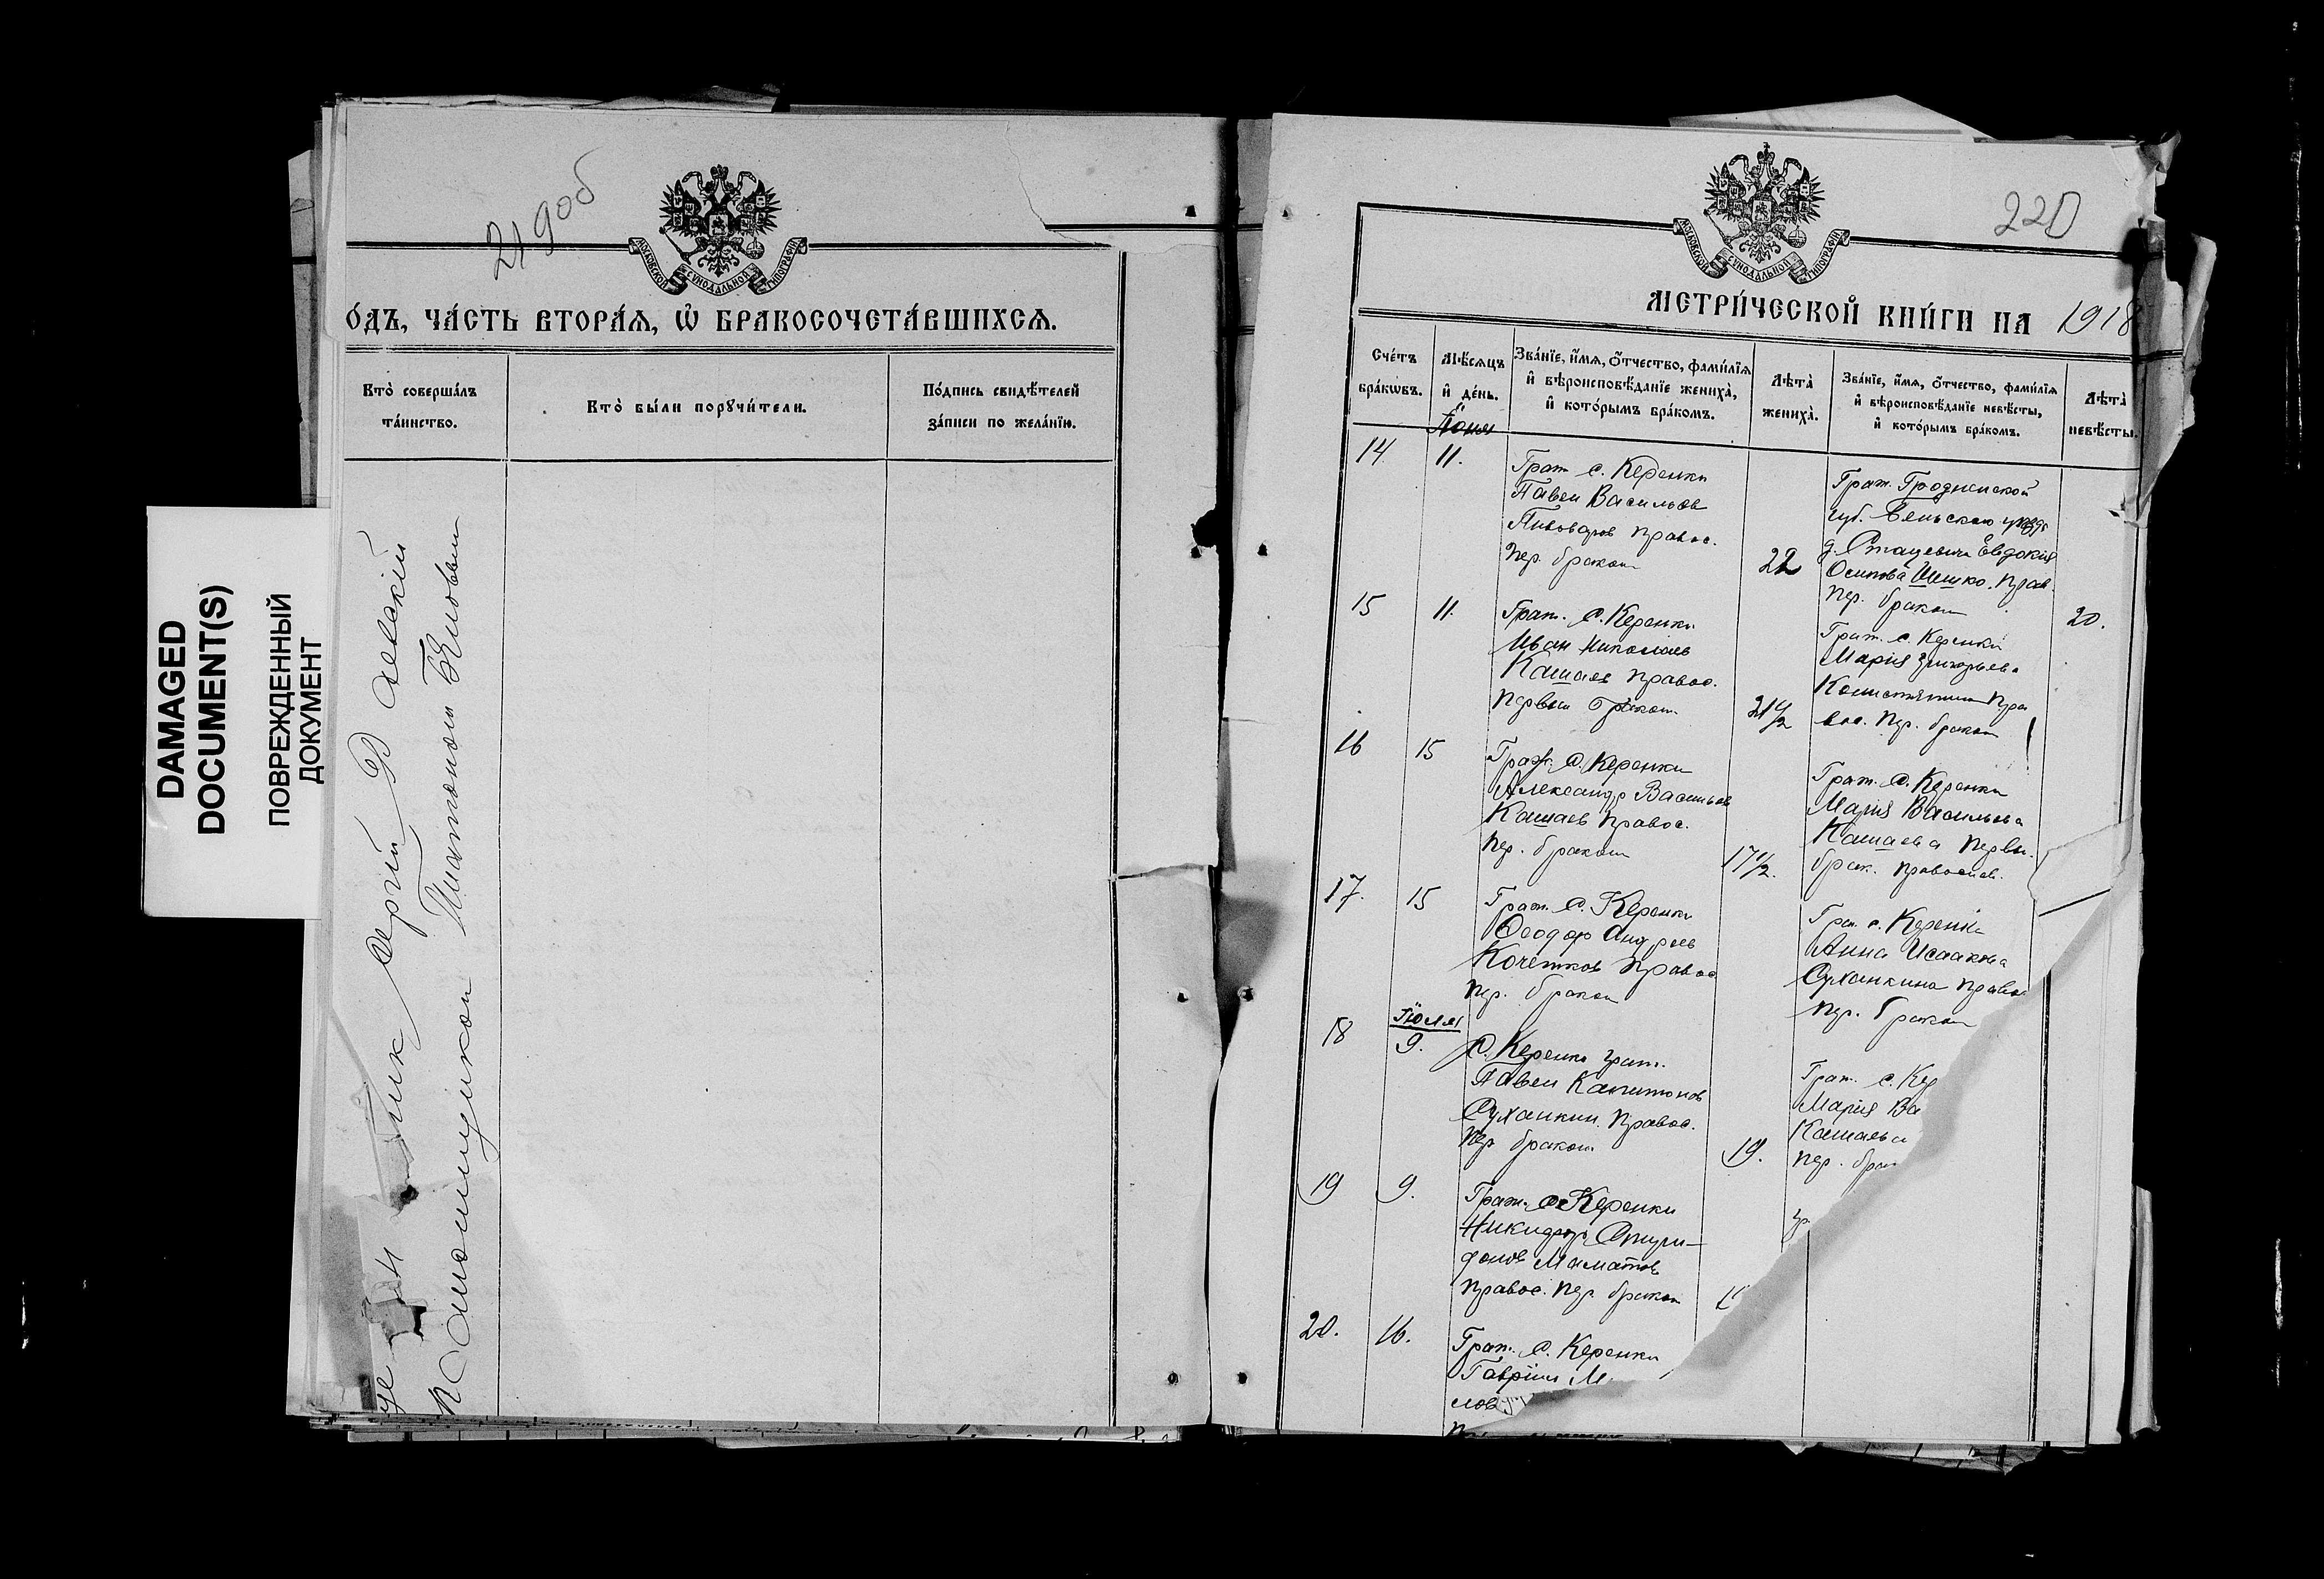 DAMAGED
DOCUMENT(S)
ПОВРЕЖДЕННЫЙ
ДОКУМЕНТ
219об
МОСКОВСКОЙ СѴНОДАЛЬНОЙ ТИПОГРАФІИ
О́ДЪ, ЧА́СТЬ ВТОРА́Я, Ѽ БРАКОСОЧЕТА́ВШИХСѦ.
Кто̀ соверша́лъ
та́инство.
Кто̀ бы́ли порꙋчи́тели.
По́дпись свидѣ́телей
за́писи по жела́нїю.
Сергій
с псаломщикомъ Платономъ
220
МОСКОВСКОЙ СѴНОДАЛЬНОЙ ТИПОГРАФІИ
МЕТРИ́ЧЕСКОЙ КНИ́ГИ НА 1918
Сче́тъ
бра́кѡвъ.
Мѣ́сѧцъ
и҆ де́нь.
Зва́нїе, и҆́мѧ, ѻ҆́тчество, фами́лїѧ
и҆ вѣроисповѣ́данїе жениха̀,
и҆ кото́рымъ бра́комъ.
Лѣ́та
жениха̀.
Зва́нїе, и҆́мѧ, ѻ҆́тчество, фами́лїѧ
и҆ вѣроисповѣ́данїе невѣ́сты,
и҆ кото́рымъ бра́комъ.
Лѣ́та
невѣ́сты.
Іюня
14
11.
Граж. с. Керенки
Павел Васильев
Пивоваров правос.
пер. браком
22
Граж. Гродненской
губ. Бельскаго уезда
д. Стацевичи Евдокия
Осипова Шешко. прав.
пер. браком
20.
15
11.
Граж. с. Керенки
Иван Николаев
Кашаев правос.
первым браком.
21 1/2
Граж. с. Керенки
Мария Григорьева
Константин пра
вос. пер. браком
16
15
Граж. с. Керенки
Александр Васильев
Кашаев правос.
пер. браком
17 1/2.
Граж. с. Керенки
Мария Васильева
Кашаева первы.
брак. православ.
17.
15
Граж. с. Керенки
Феодор Андреев
Кочетков правос
пер. браком
Граж. с. Керенки
Анна Исаакова
Суханкина право
пер. браком
18
Іюля
9.
с. Керенки граж.
Павел Капитонов
Суханкин. правос.
пер браком
19.
Граж. с. Кер
Мария Ва
Кашаева
пер. брак
19
9.
Граж. с. Керенки
Никифор Спири-
донов Маматов
правос. пер. браком
гр
20.
16.
Граж. с. Керенки
Гавриил М.
лов